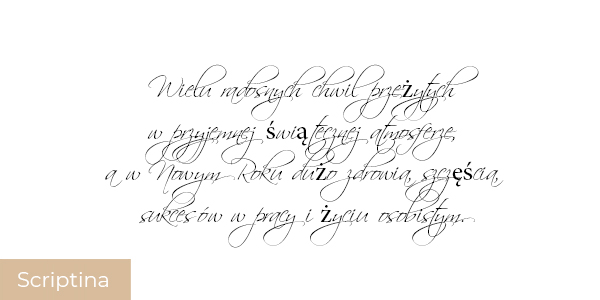 Wielu radosnych chwil przeżytych
w przyjemnej świątecznej atmosferze,
a w Nowym Roku dużo zdrowia, szczęścia,
sukcesów w pracy i życiu osobistym.
Scriptina